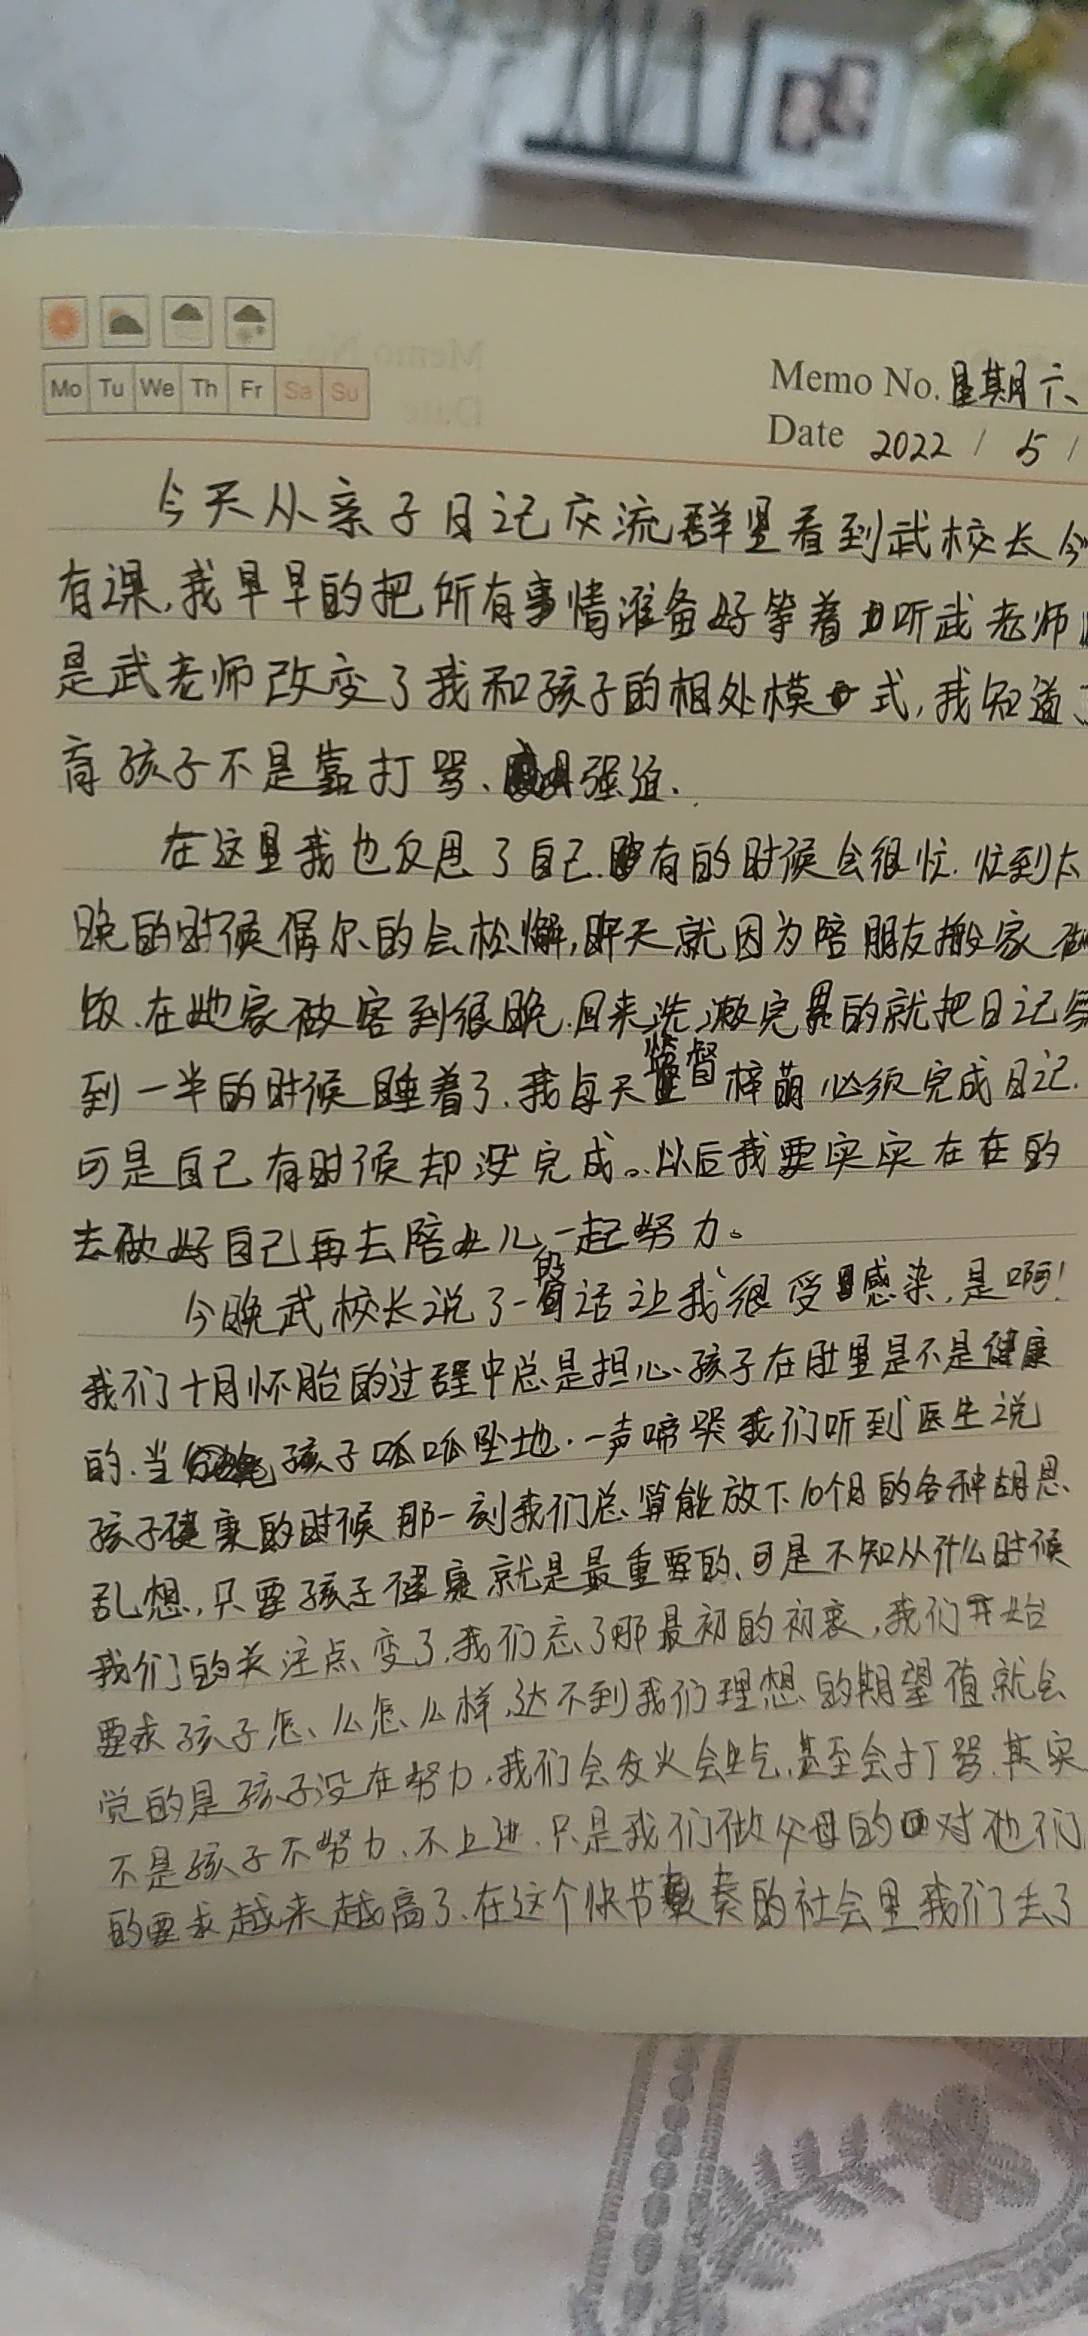 Mo Tu We Th Fr Sa Su
Memo No. 星期六
Date 2022 / 5 /
今天从亲子日记交流群里看到武校长今
有课,我早早的把所有事情准备好等着听武老师
是武老师改变了我和孩子的相处模式,我知道
育孩子不是靠打骂、强迫.
在这里我也反思了自己.有的时候会很忙.忙到太
晚的时候偶尔的会松懈,昨天就因为陪朋友搬家
饭.在她家做客到很晚.回来洗漱完的就把日记写
到一半的时候睡着了.我每天监督梓萌必须完成日记.
可是自己有时候却没完成。以后我要实实在在的
去做好自己再去陪女儿一起努力。
今晚武校长说了一段话让我很受感染,是啊!
我们十月怀胎的过程中总是担心孩子在肚里是不是健康
的.当孩子呱呱坠地.一声啼哭我们听到医生说
孩子健康的时候那一刻我们总算能放下10个月的各种胡思
乱想,只要孩子健康就是最重要的、可是不知从什么时候
我们的关注点变了,我们忘了那最初的初衷,我们开始
要求孩子怎么怎么样,达不到我们理想的期望值就会
觉的是孩子没在努力,我们会发火会生气,甚至会打骂.其实
不是孩子不努力、不上进.只是我们做父母的对他们
的要求越来越高了、在这个快节奏的社会里我们丢了